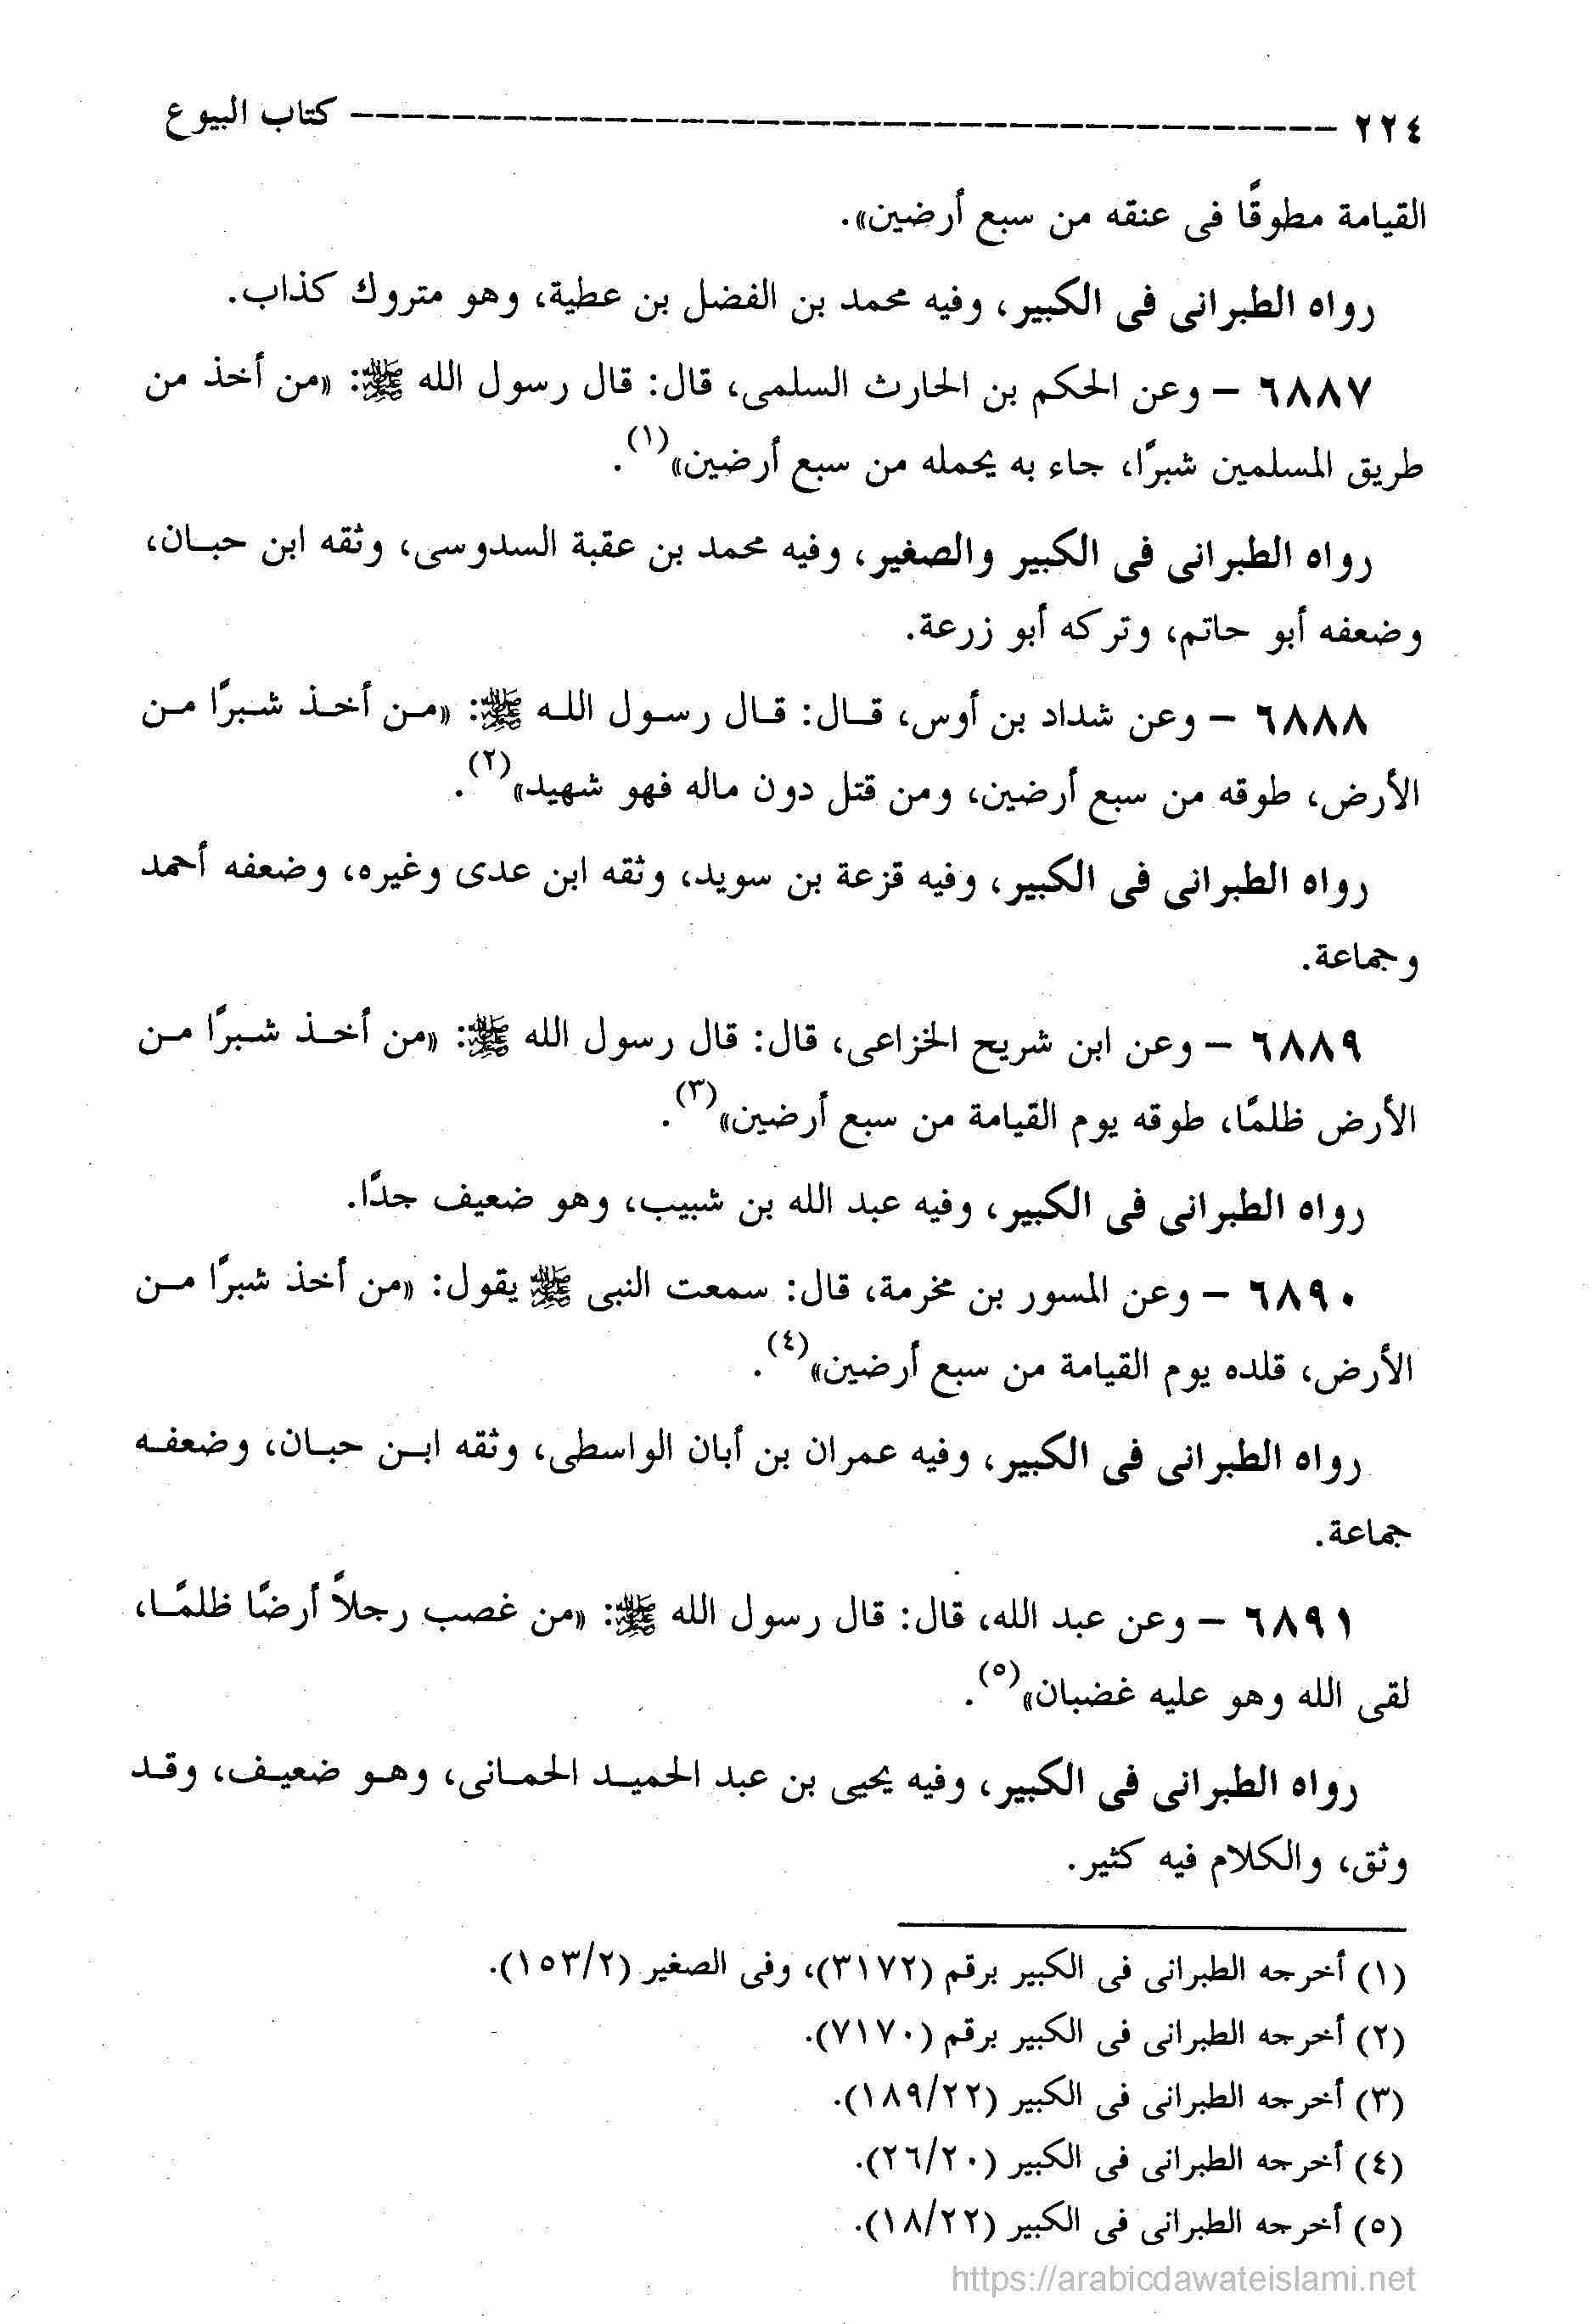 ٢٢٤ ---------------------------------------- كتاب البيوع
القيامة مطوقًا فى عنقه من سبع أرضين».
رواه الطبرانى فى الكبير، وفيه محمد بن الفضل بن عطية، وهو متروك كذاب.
٦٨٨٧ – وعن الحكم بن الحارث السلمى، قال: قال رسول الله ﷺ: «من أخذ من
طريق المسلمين شبرًا، جاء به يحمله من سبع أرضين»(١).
رواه الطبرانى فى الكبير والصغير، وفيه محمد بن عقبة السدوسى، وثقه ابن حبـان،
وضعفه أبو حاتم، وتركه أبو زرعة.
٦٨٨٨ – وعن شداد بن أوس، قـال: قـال رسـول اللـه ﷺ: «مـن أخـذ شـبرًا مـن
الأرض، طوقه من سبع أرضين، ومن قتل دون ماله فهو شهيد»(٢).
رواه الطبرانى فى الكبير، وفيه قزعة بن سويد، وثقه ابن عدى وغيره، وضعفه أحمد
وجماعة.
٦٨٨٩ – وعن ابن شريح الخزاعى، قال: قال رسول الله ﷺ: «من أخـذ شـبرًا مـن
الأرض ظلمًا، طوقه يوم القيامة من سبع أرضين»(٣).
رواه الطبرانى فى الكبير، وفيه عبد الله بن شبيب، وهو ضعيف جدًا.
٦٨٩٠ – وعن المسور بن مخرمة، قال: سمعت النبى ﷺ يقول: «من أخذ شبرًا مـن
الأرض، قلده يوم القيامة من سبع أرضين»(٤).
رواه الطبرانى فى الكبير، وفيه عمران بن أبان الواسطى، وثقه ابـن حبـان، وضعفـه
جماعة.
٦٨٩١ – وعن عبد الله، قال: قال رسول الله ﷺ: «من غصب رجلاً أرضًا ظلمًـا،
لقى الله وهو عليه غضبان»(٥).
رواه الطبرانى فى الكبير، وفيه يحيى بن عبد الحميـد الحمـانى، وهـو ضعيـف، وقـد
وثق، والكلام فيه كثير.
(١) أخرجه الطبرانى فى الكبير برقم (٣١٧٢)، وفى الصغير (١٥٣/٢).
(٢) أخرجه الطبرانى فى الكبير برقم (٧١٧٠).
(٣) أخرجه الطبرانى فى الكبير (١٨٩/٢٢).
(٤) أخرجه الطبرانى فى الكبير (٢٦/٢٠).
(٥) أخرجه الطبرانى فى الكبير (١٨/٢٢).
https://arabicdawateislami.net